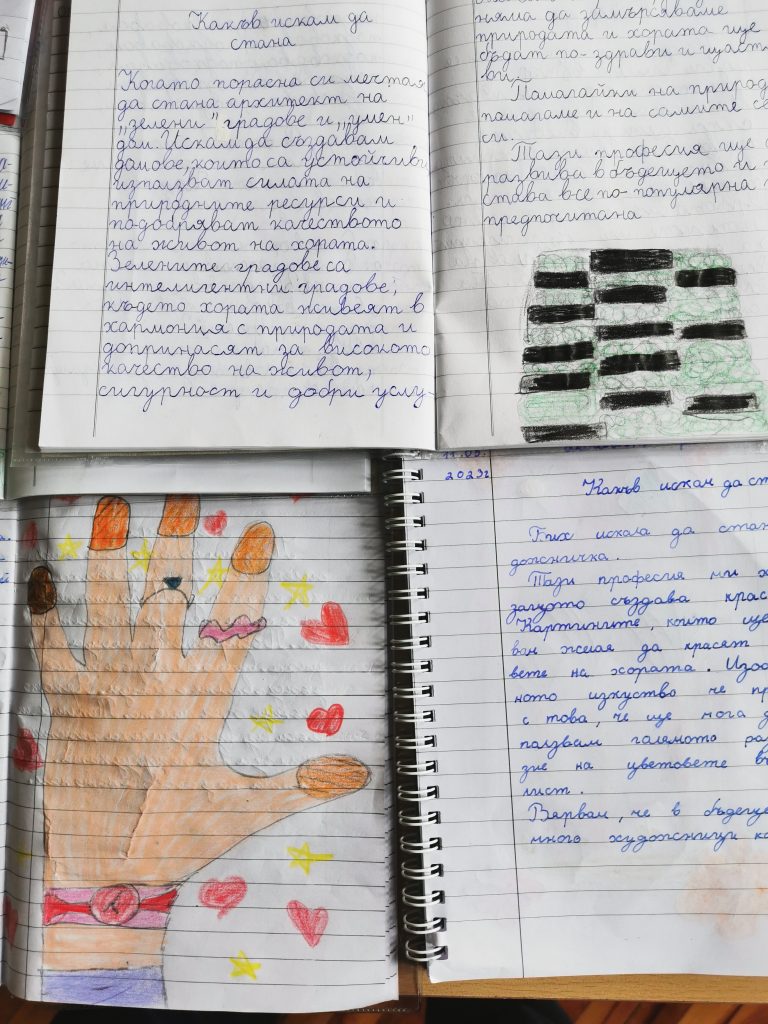 Какъв искам да
стана
Когато порасна си мечтая
да стана архитект на
„зелени" градове и „умен"
дом. Искам да създавам
домове, които са устойчиви
използват силата на
природните ресурси и
подобряват качеството
на живот на хората.
Зелените градове са
интелигентни градове,
където хората живеят в
хармония с природата и
допринасят за високото
качество на живот,
сигурност и добри услу-
няма да замърсяваме
природата и хората ще
бъдат по-здрави и щаст
ви.
Помагайки на природ
помагаме и на самите се
си.
Тази професия ще
развива в бъдещето и
става все по-популярна
предпочитана
2023г
Какъв искам да ст
Бих искала да стан
дожничка.
Тази професия ми х
защото създава крас
Картините, които ще
вам желая да красят
вете на хората. Изоб
ното изкуство ме пр
с това, че ще мога д
ползвам голямото раз
зие на цветовете въ
лист.
Вярвам, че в бъдеще
много художници ка